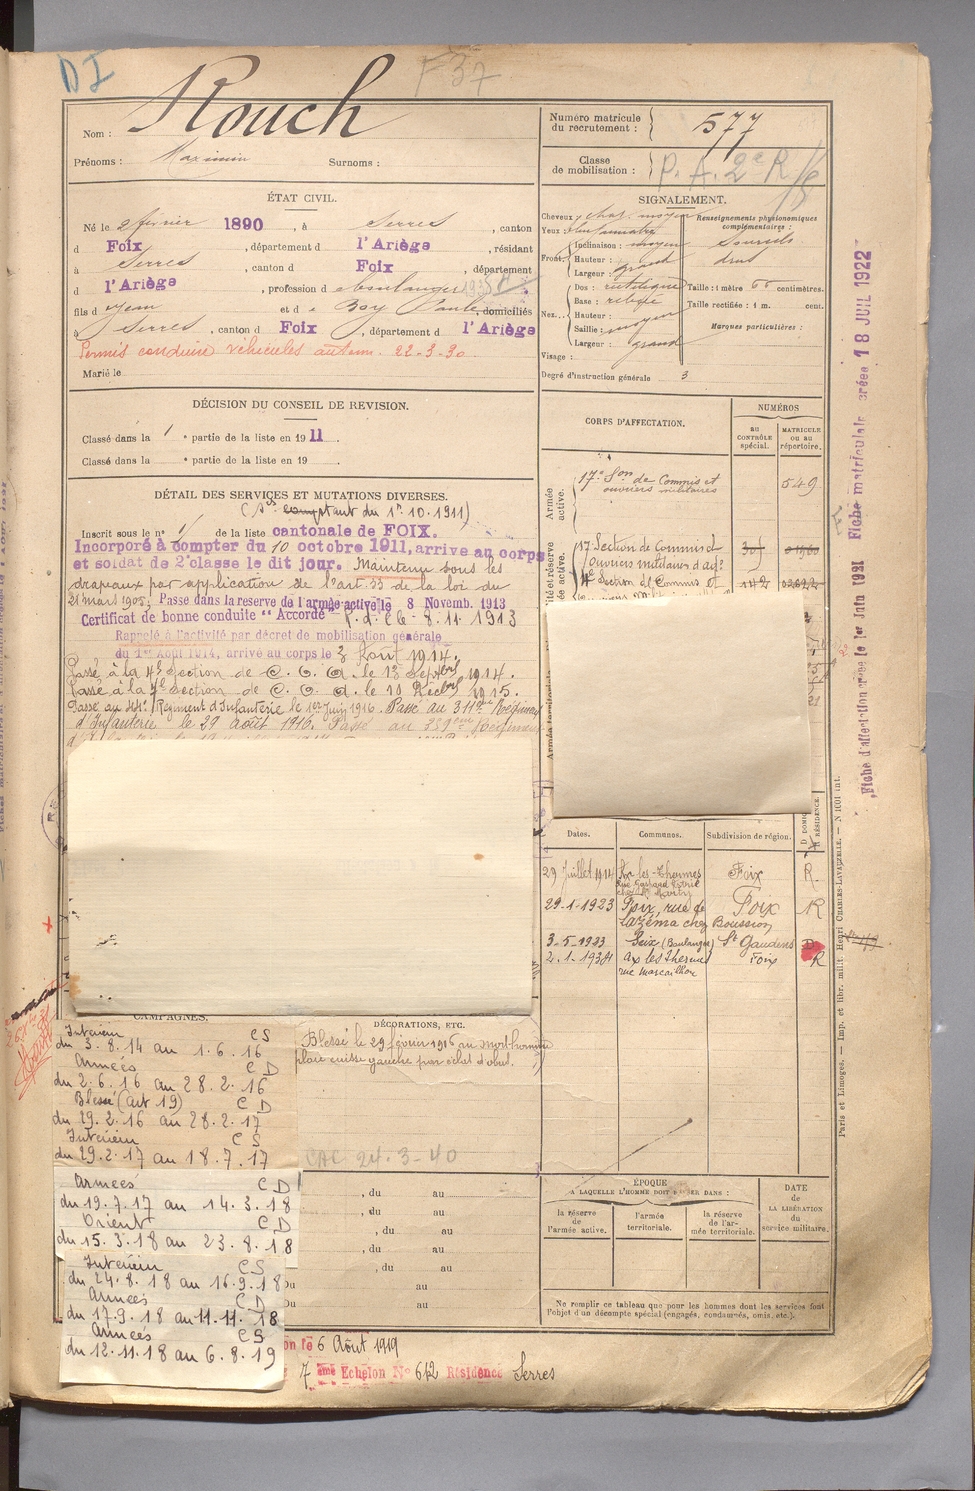 D I
F 37
Nom : Rouch
Prénoms : Maximin Surnoms :
Numéro matricule du recrutement : 577
Classe de mobilisation : P. A. 2e R/8
ÉTAT CIVIL.
Né le 2 février 1890, à Serres, canton
d Foix, département d l'Ariège, résidant
à Serres, canton d Foix, département
d l'Ariège, profession d boulanger
fils d Jean et d e Boy Paule, domiciliés
à Serres, canton d Foix, département d l'Ariège
Permis conduire véhicules autom. 22-3-30.
Marié le
SIGNALEMENT.
Cheveux : chat. moyen
Yeux :
Front. Inclinaison : moyen
Hauteur :
Largeur : grand
Nez. Dos : rectiligne
Base : relevée
Hauteur :
Saillie : moyen
Largeur : grand
Visage :
Renseignements physionomiques complémentaires :
Sourcils
drus
Taille : 1 mètre centimètres.
Taille rectifiée : 1 m. cent.
Marques particulières :
Degré d'instruction générale 3
DÉCISION DU CONSEIL DE REVISION.
Classé dans la 1 e partie de la liste en 1911
Classé dans la e partie de la liste en 19
DÉTAIL DES SERVICES ET MUTATIONS DIVERSES.
comptant du 1er. 10. 1911)
Inscrit sous le n° de la liste cantonale de FOIX.
Incorporé à compter du 10 octobre 1911, arrive au corps
et soldat de 2e classe le dit jour. Maintenu sous les
drapeaux par application de l'art. 33 de la loi du
21 mars 1905; Passé dans la reserve de l'armée active le 8 Novemb. 1913
Certificat de bonne conduite "Accordé" 8. 11. 1913
Rappelé à l'activité par décret de mobilisation générale
du 1er Août 1914, arrivé au corps le 3 Août 1914.
Passé à la 4e Section de C. O. A. le 13 Septbre 1914.
Passé à la Section de C. O. A. le 10 Décbre 1915.
Passé au Régiment d'Infanterie le 1er Juin 1916. Passé au 311eme Régiment
d'Infanterie le 29 août 1916. Passé au 359eme Régiment
CORPS D'AFFECTATION.
NUMÉROS
au CONTRÔLE spécial.
MATRICULE ou au répertoire.
Armée active.
17e Son de Commis et ouvriers militaires 549
17 Section de Commis et ouvriers militaires d'adm
4e Section de Commis et
Dates. Communes. Subdivision de région. D DOMICILE R RÉSIDENCE.
29 Juillet 1914 Ax-les-Thermes Foix R.
29-1-1923 Foix, rue de Lazéma chez Boussion Foix R
3-5-1923 Seix (Boulanger) St Gaudens D
2-1-1934 Ax les Thermes Foix R
rue Marcaillou
CAMPAGNES.
Intérieur CS
du 3. 8. 14 au 1. 6. 16
Armées CD
du 2. 6. 16 au 28. 2. 16
Blessé (art 19) CD
du 29. 2. 16 au 28. 2. 17
Intérieur CS
du 29. 2. 17 au 18. 7. 17
Armées CD
du 19. 7. 17 au 14. 3. 18
Orient CD
du 15. 3. 18 au 23. 8. 18
Intérieur CS
du 24. 8. 18 au 16. 9. 18
Armées CD
du 17. 9. 18 au 11. 11. 18
Armées CS
du 12. 11. 18 au 6. 8. 19
DÉCORATIONS, ETC.
Blessé le 29 février 1916 au mort-homme
plaie cuisse gauche par éclat d'obus.
CAC 24-3-40
, du au
, du au
, du au
, du au
, du au
Du au
au
ÉPOQUE
A LAQUELLE L'HOMME DOIT PASSER DANS :
la réserve de l'armée active.
l'armée territoriale.
la réserve de l'armée territoriale.
DATE de LA LIBÉRATION du service militaire.
Ne remplir ce tableau que pour les hommes dont les services font
l'objet d'un décompte spécial (engagés, condamnés, omis, etc.).
on le 6 Août 1919
7 eme Echelon N° 612 Résidence Serres
Paris et Limoges. — Imp. et libr. milit. Henri CHARLES-LAVAUZELLE.
Fiche matriculaire créée 18 JUIL 1922
Fiche d'affectation créée le 1er Juin 1931